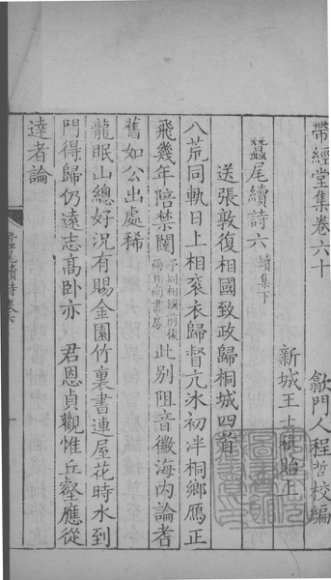 帶經堂集卷六十
歙門人程哲校編
新城王士禛貽上
蠶尾續詩六 續集下
送張敦復相國致政歸桐城四首
八荒同軌日上相衮衣歸督亢冰初泮桐鄉鴈正
飛幾年陪禁闥 予同相國前後兩直南書房 此別阻音徽海內論耆
舊如公出處稀
龍眠山總好況有賜金園竹裏書連屋花時水到
門得歸仍遠志高卧亦 君恩貞觀惟丘壑應從
達者論